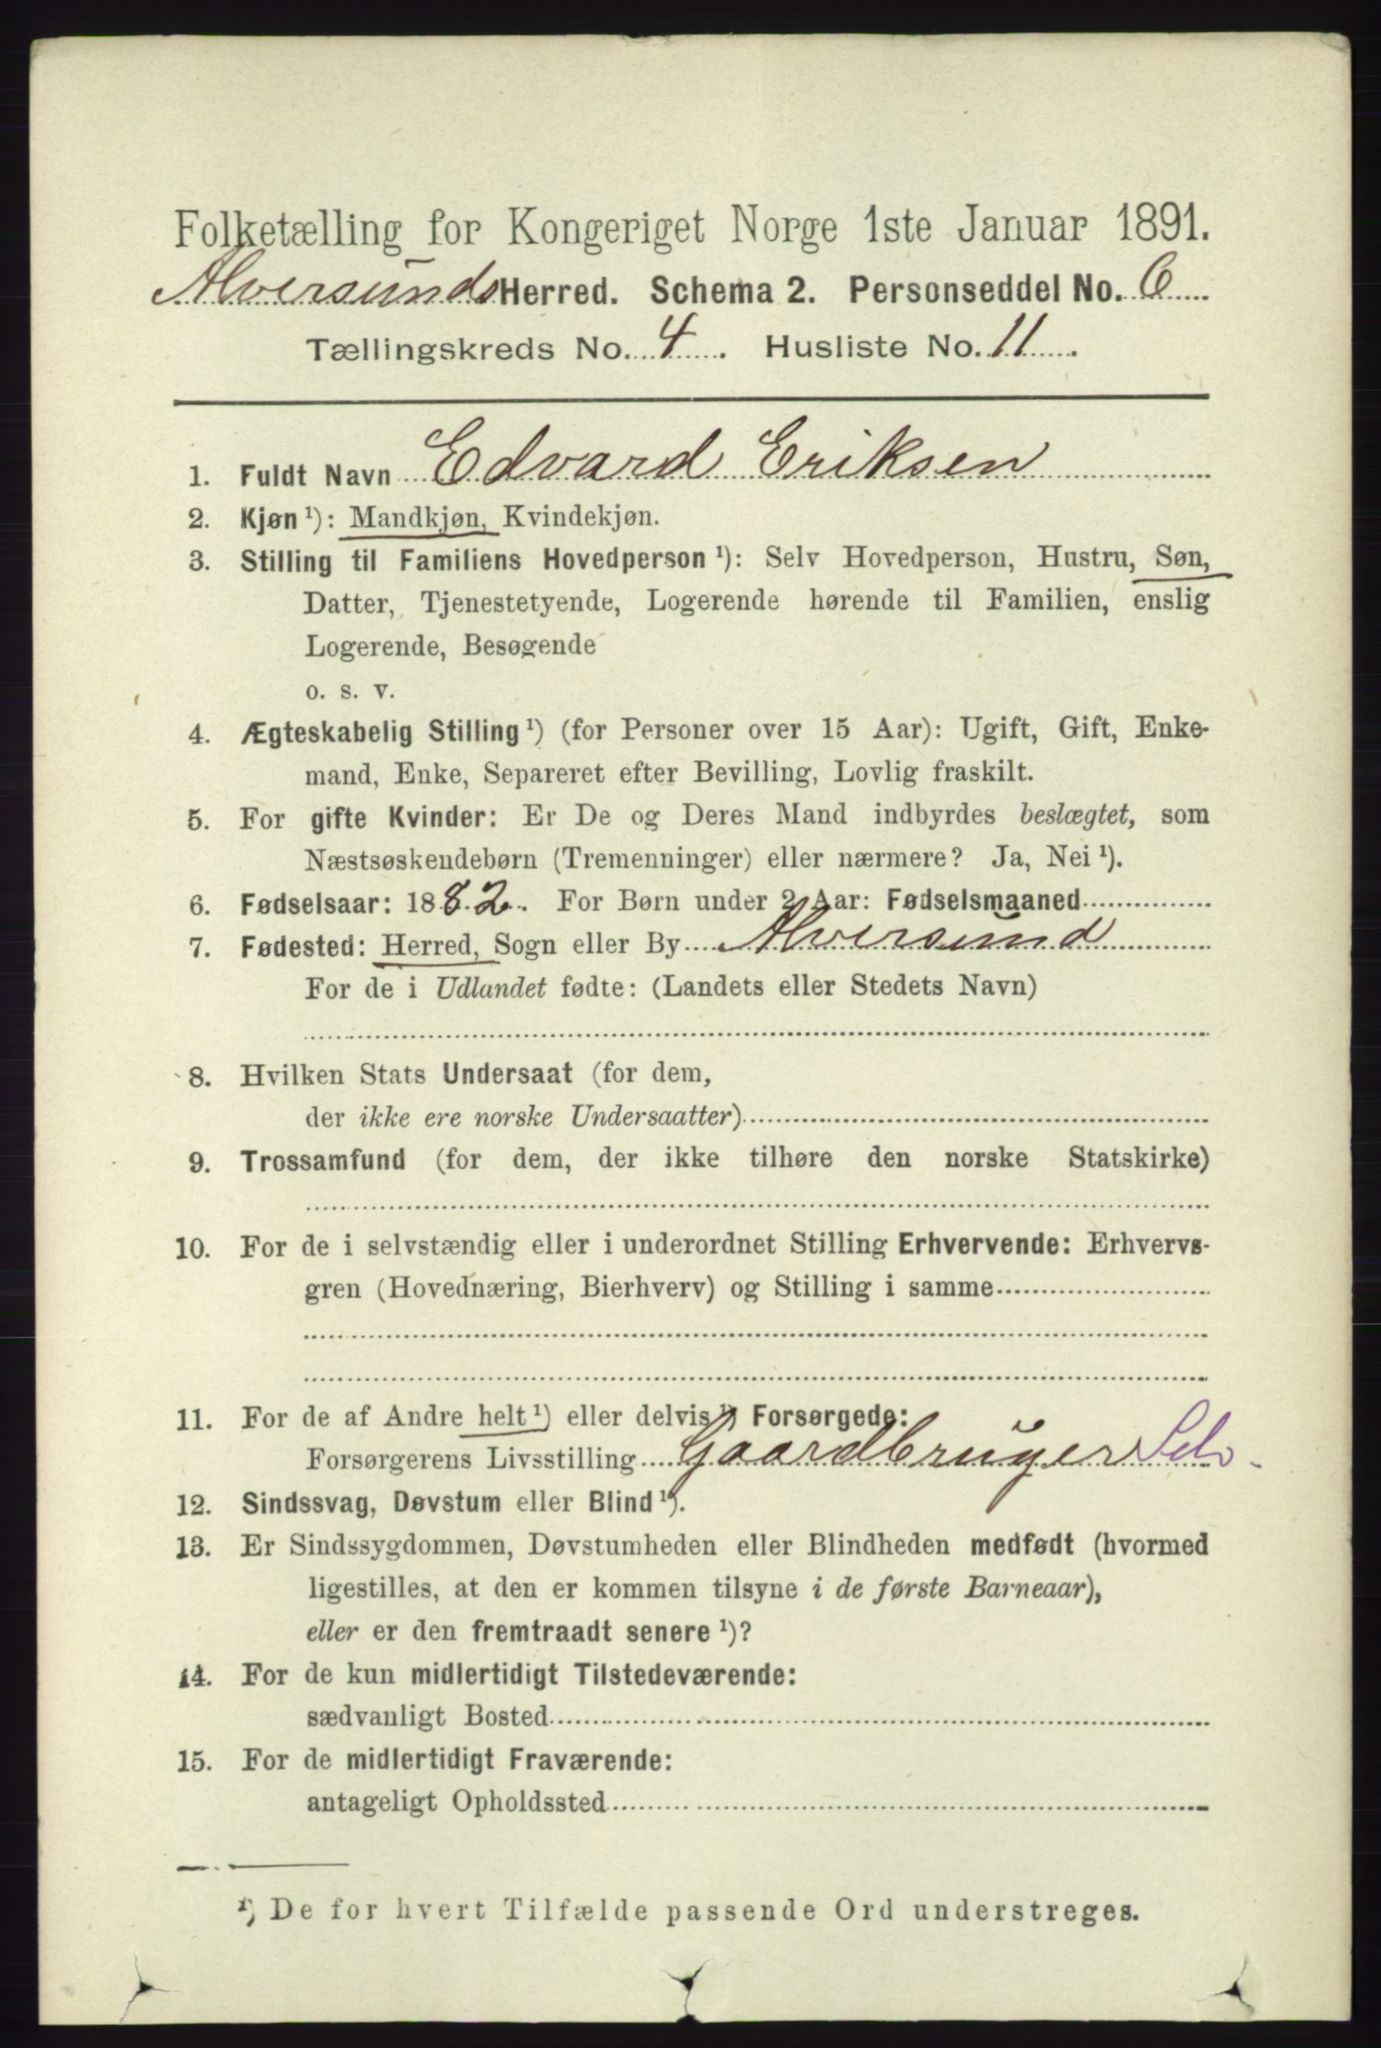 Folketælling for Kongeriget Norge 1ste Januar 1891.
Alversunds Herred. Schema 2. Personseddel No. 6
Tællingskreds No. 4. Husliste No. 11.
1. Fuldt Navn Edvard Eriksen
2. Kjøn ¹): Mandkjøn, Kvindekjøn.
3. Stilling til Familiens Hovedperson ¹): Selv Hovedperson, Hustru, Søn,
Datter, Tjenestetyende, Logerende hørende til Familien, enslig
Logerende, Besøgende
o. s. v.
4. Ægteskabelig Stilling ¹) (for Personer over 15 Aar): Ugift, Gift, Enke-
mand, Enke, Separeret efter Bevilling, Lovlig fraskilt.
5. For gifte Kvinder: Er De og Deres Mand indbyrdes beslægtet, som
Næstsøskendebørn (Tremenninger) eller nærmere? Ja, Nei ¹).
6. Fødselsaar: 1882. For Børn under 2 Aar: Fødselsmaaned
7. Fødested: Herred, Sogn eller By Alversund
For de i Udlandet fødte: (Landets eller Stedets Navn)
8. Hvilken Stats Undersaat (for dem,
der ikke ere norske Undersaatter)
9. Trossamfund (for dem, der ikke tilhøre den norske Statskirke)
10. For de i selvstændig eller i underordnet Stilling Erhvervende: Erhvervs-
gren (Hovednæring, Bierhverv) og Stilling i samme
11. For de af Andre helt ¹) eller delvis ¹) Forsørgede:
Forsørgerens Livsstilling Gaardbruger Selv
12. Sindssvag, Døvstum eller Blind ¹).
13. Er Sindssygdommen, Døvstumheden eller Blindheden medfødt (hvormed
ligestilles, at den er kommen tilsyne i de første Barneaar),
eller er den fremtraadt senere ¹)?
14. For de kun midlertidigt Tilstedeværende:
sædvanligt Bosted
15. For de midlertidigt Fraværende:
antageligt Opholdssted
¹) De for hvert Tilfælde passende Ord understreges.